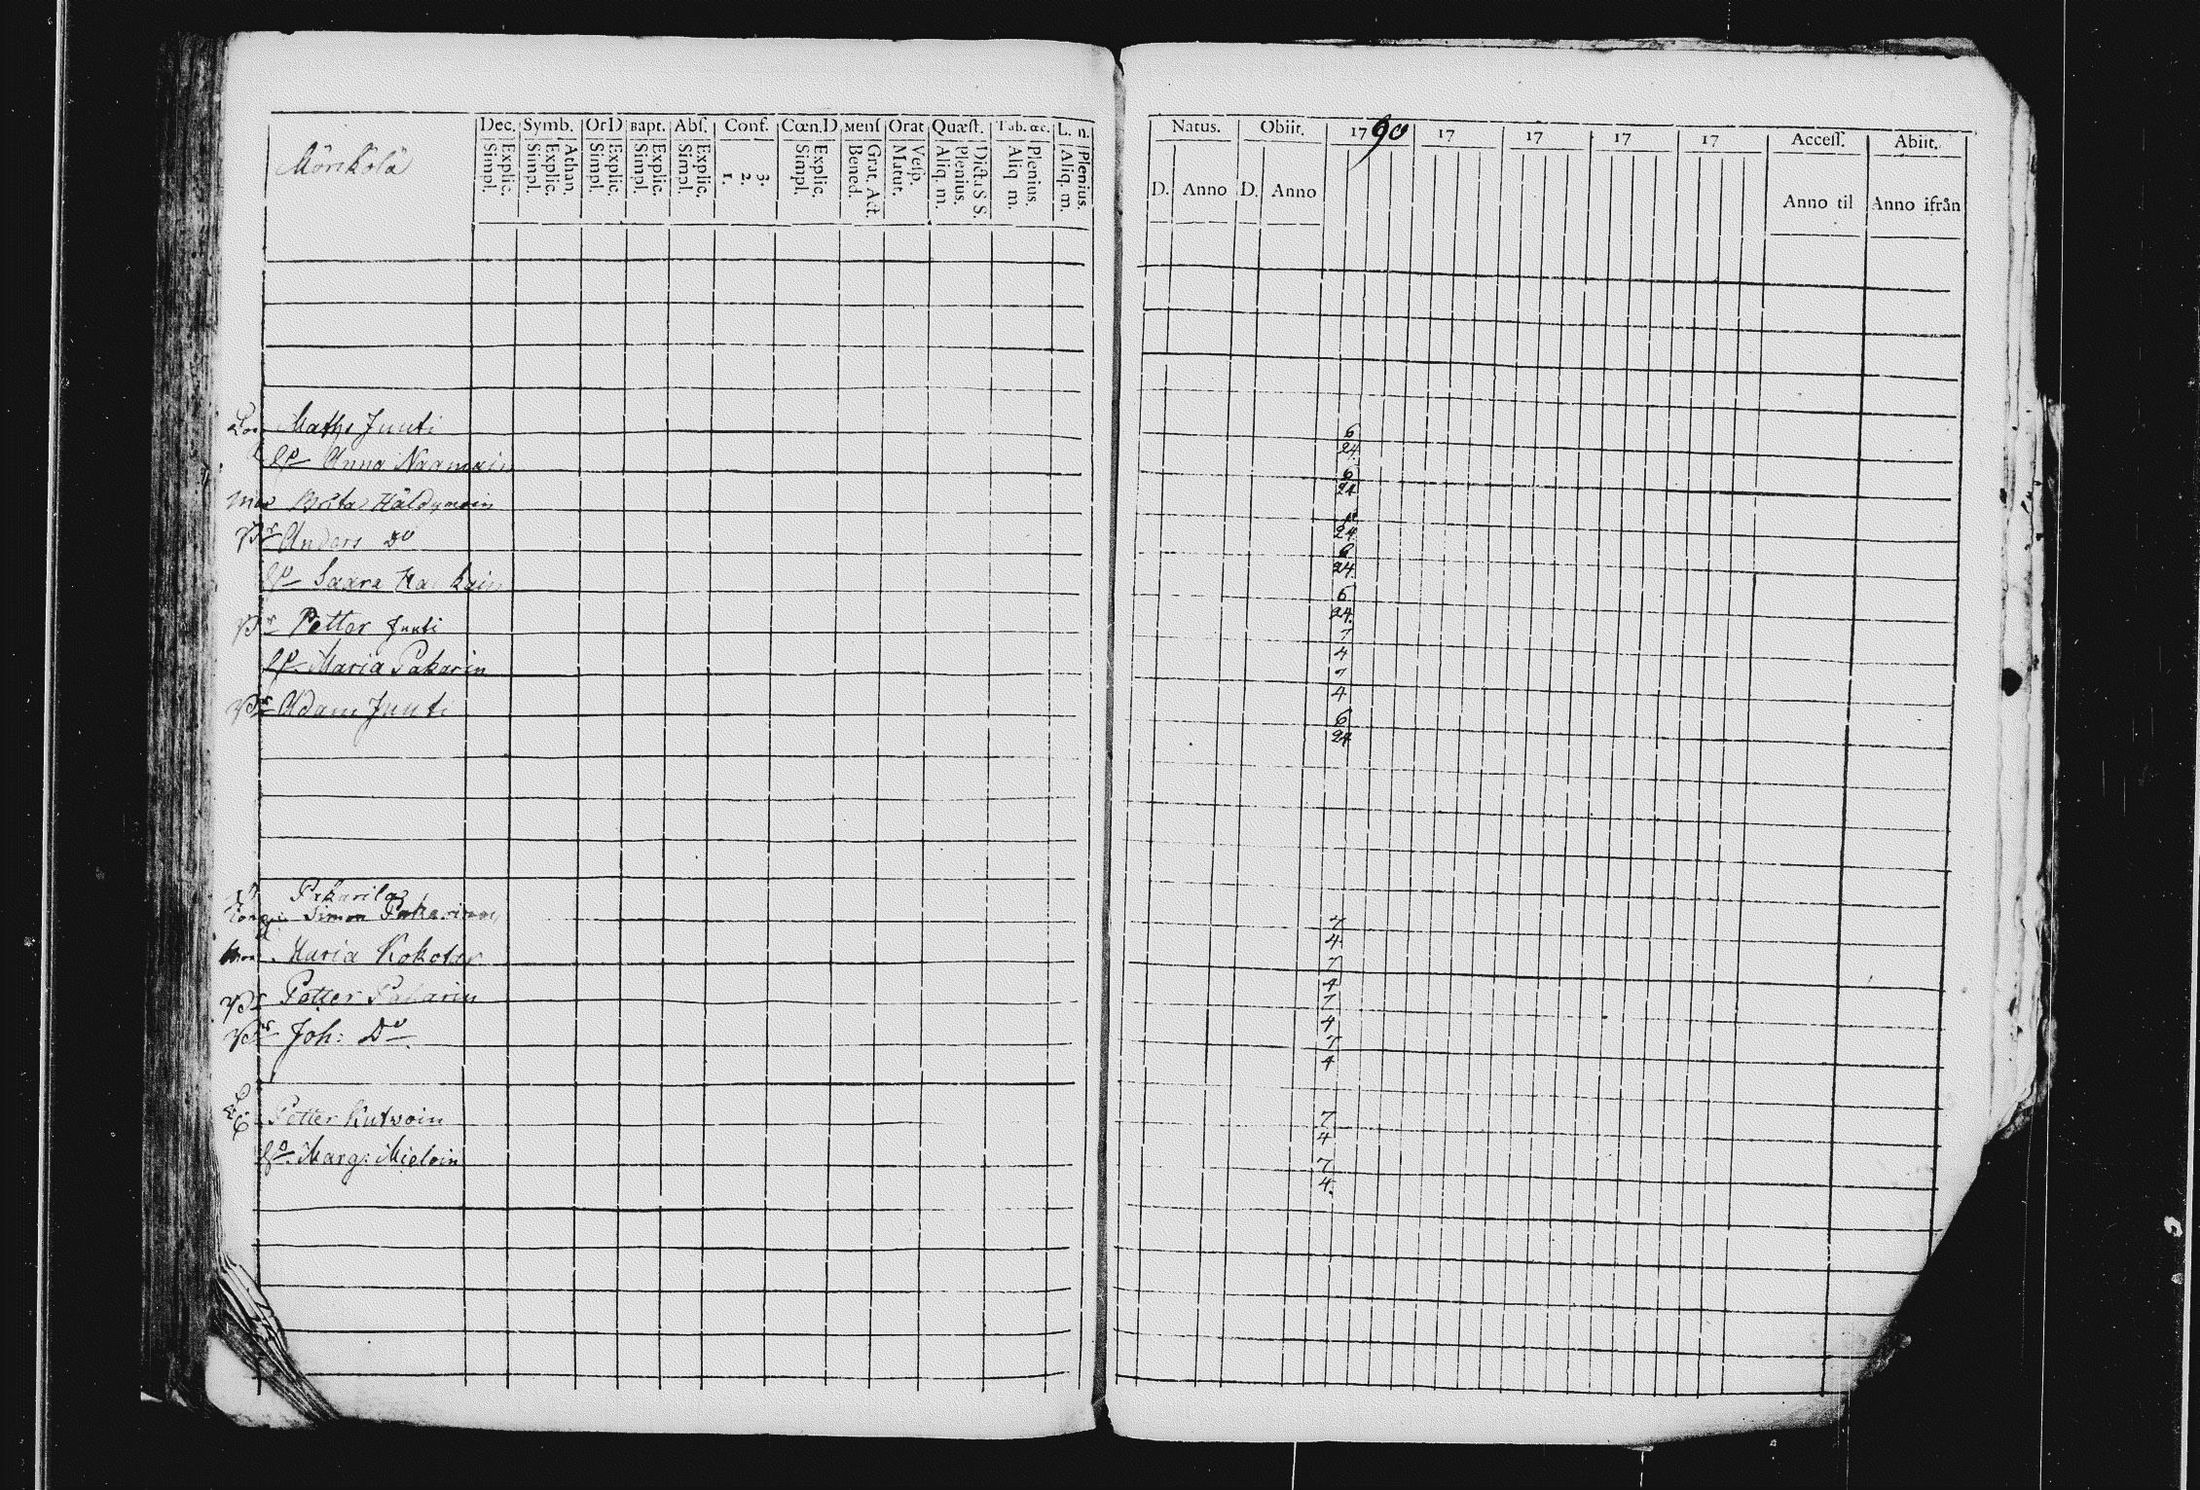 Dec. Symb. OrD Bapt. Abſ. Conf. Cœn.D Menſ Orat Quæſt. Tab. œc. L. n.
Explic. Simpl. Athan. Explic. Simpl. Explic. Simpl. Explic. Simpl. Explic. Simpl. 3. 2. 1. Explic. Simpl. Grat. Act. Bened. Veſp. Matut. Dicta S S. Plenius. Aliq. m. Plenius. Aliq. m. Plenius. Aliq. m.
Mörikölä
Maths Juuti
Sp Anna
Brita
Pr Anders Do
Sp Saara
Pr Petter Juuti
Sp Maria Pakarin
Pr Adam Juuti
Pakarila
Simon Pakarinen
Maria
Pr Petter Pakarin
Pr Joh: Do
Petter Kutvoin
Marg: Mieloin
Natus. Obiit. 1790 17 17 17 17 Acceſſ. Abiit.
D. Anno D. Anno Anno til Anno ifrån
6
24
6
24
24
6
24
6
24
7
4
7
4
6
24
7
4
7
4
7
4
7
4
7
4
7
4